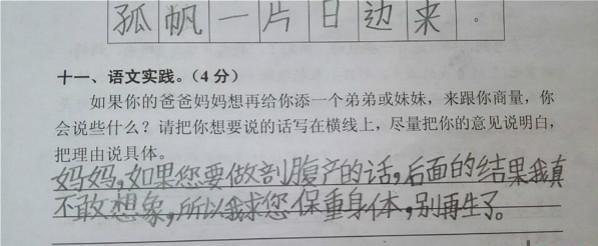 孤帆一片日边来。
十一、语文实践。(4分)
如果你的爸爸妈妈想再给你添一个弟弟或妹妹，来跟你商量，你
会说些什么？请把你想要说的话写在横线上，尽量把你的意见说明白，
把理由说具体。
妈妈，如果您要做剖腹产的话，后面的结果我真
不敢想象，所以我求您保重身体，别再生了。